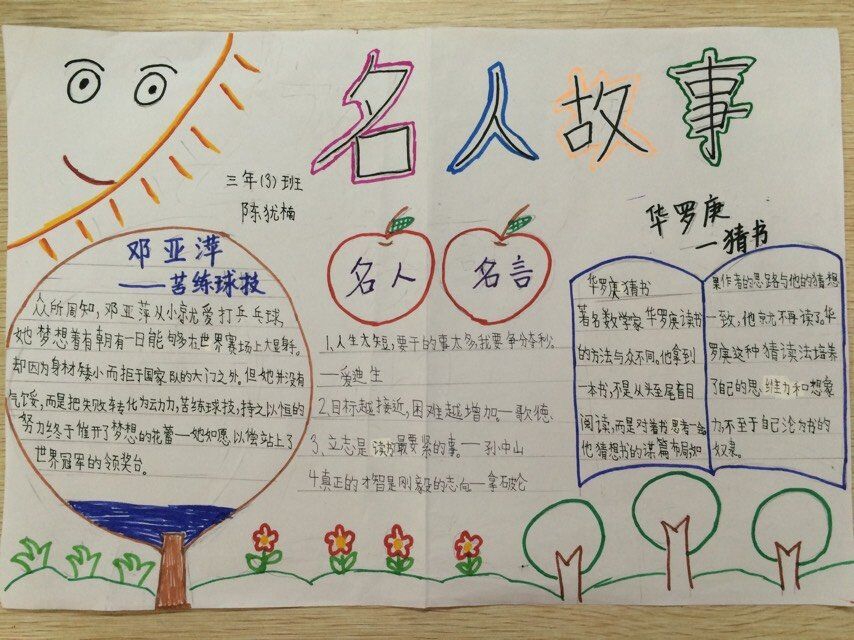 名人故事
三年(3)班
陈犹楠
邓亚萍
——苦练球技
众所周知,邓亚萍从小就尤爱打乒乓球,
她梦想着有朝有一日能够在世界赛场上大显身手。
却因为身材矮小而拒于国家队的大门之外。但她并没有
气馁,而是把失败转化为动力,苦练球技,持之以恒的
努力终于催开了梦想的花蕾—她如愿以偿站上了
世界冠军的领奖台。
名人
名言
1.人生太短,要干的事太多,我要争分夺秒。
—爱迪生
2.目标越接近,困难越增加。—歌德.
3、立志是读书最要紧的事。—孙中山
4.真正的才智是刚毅的志向—拿破伦
华罗庚
—猜书
华罗庚猜书
著名数学家华罗庚读书
的方法与众不同。他拿到
一本书,不是从头至尾盲目
阅读,而是对着书思考一会
他猜想书的谋篇布局,如
果作者的思路与他的猜想
一致,他就不再读了。华
罗庚这种猜读法培养
了自己的思维力和想象
力,不至于自己沦为书的
奴隶。